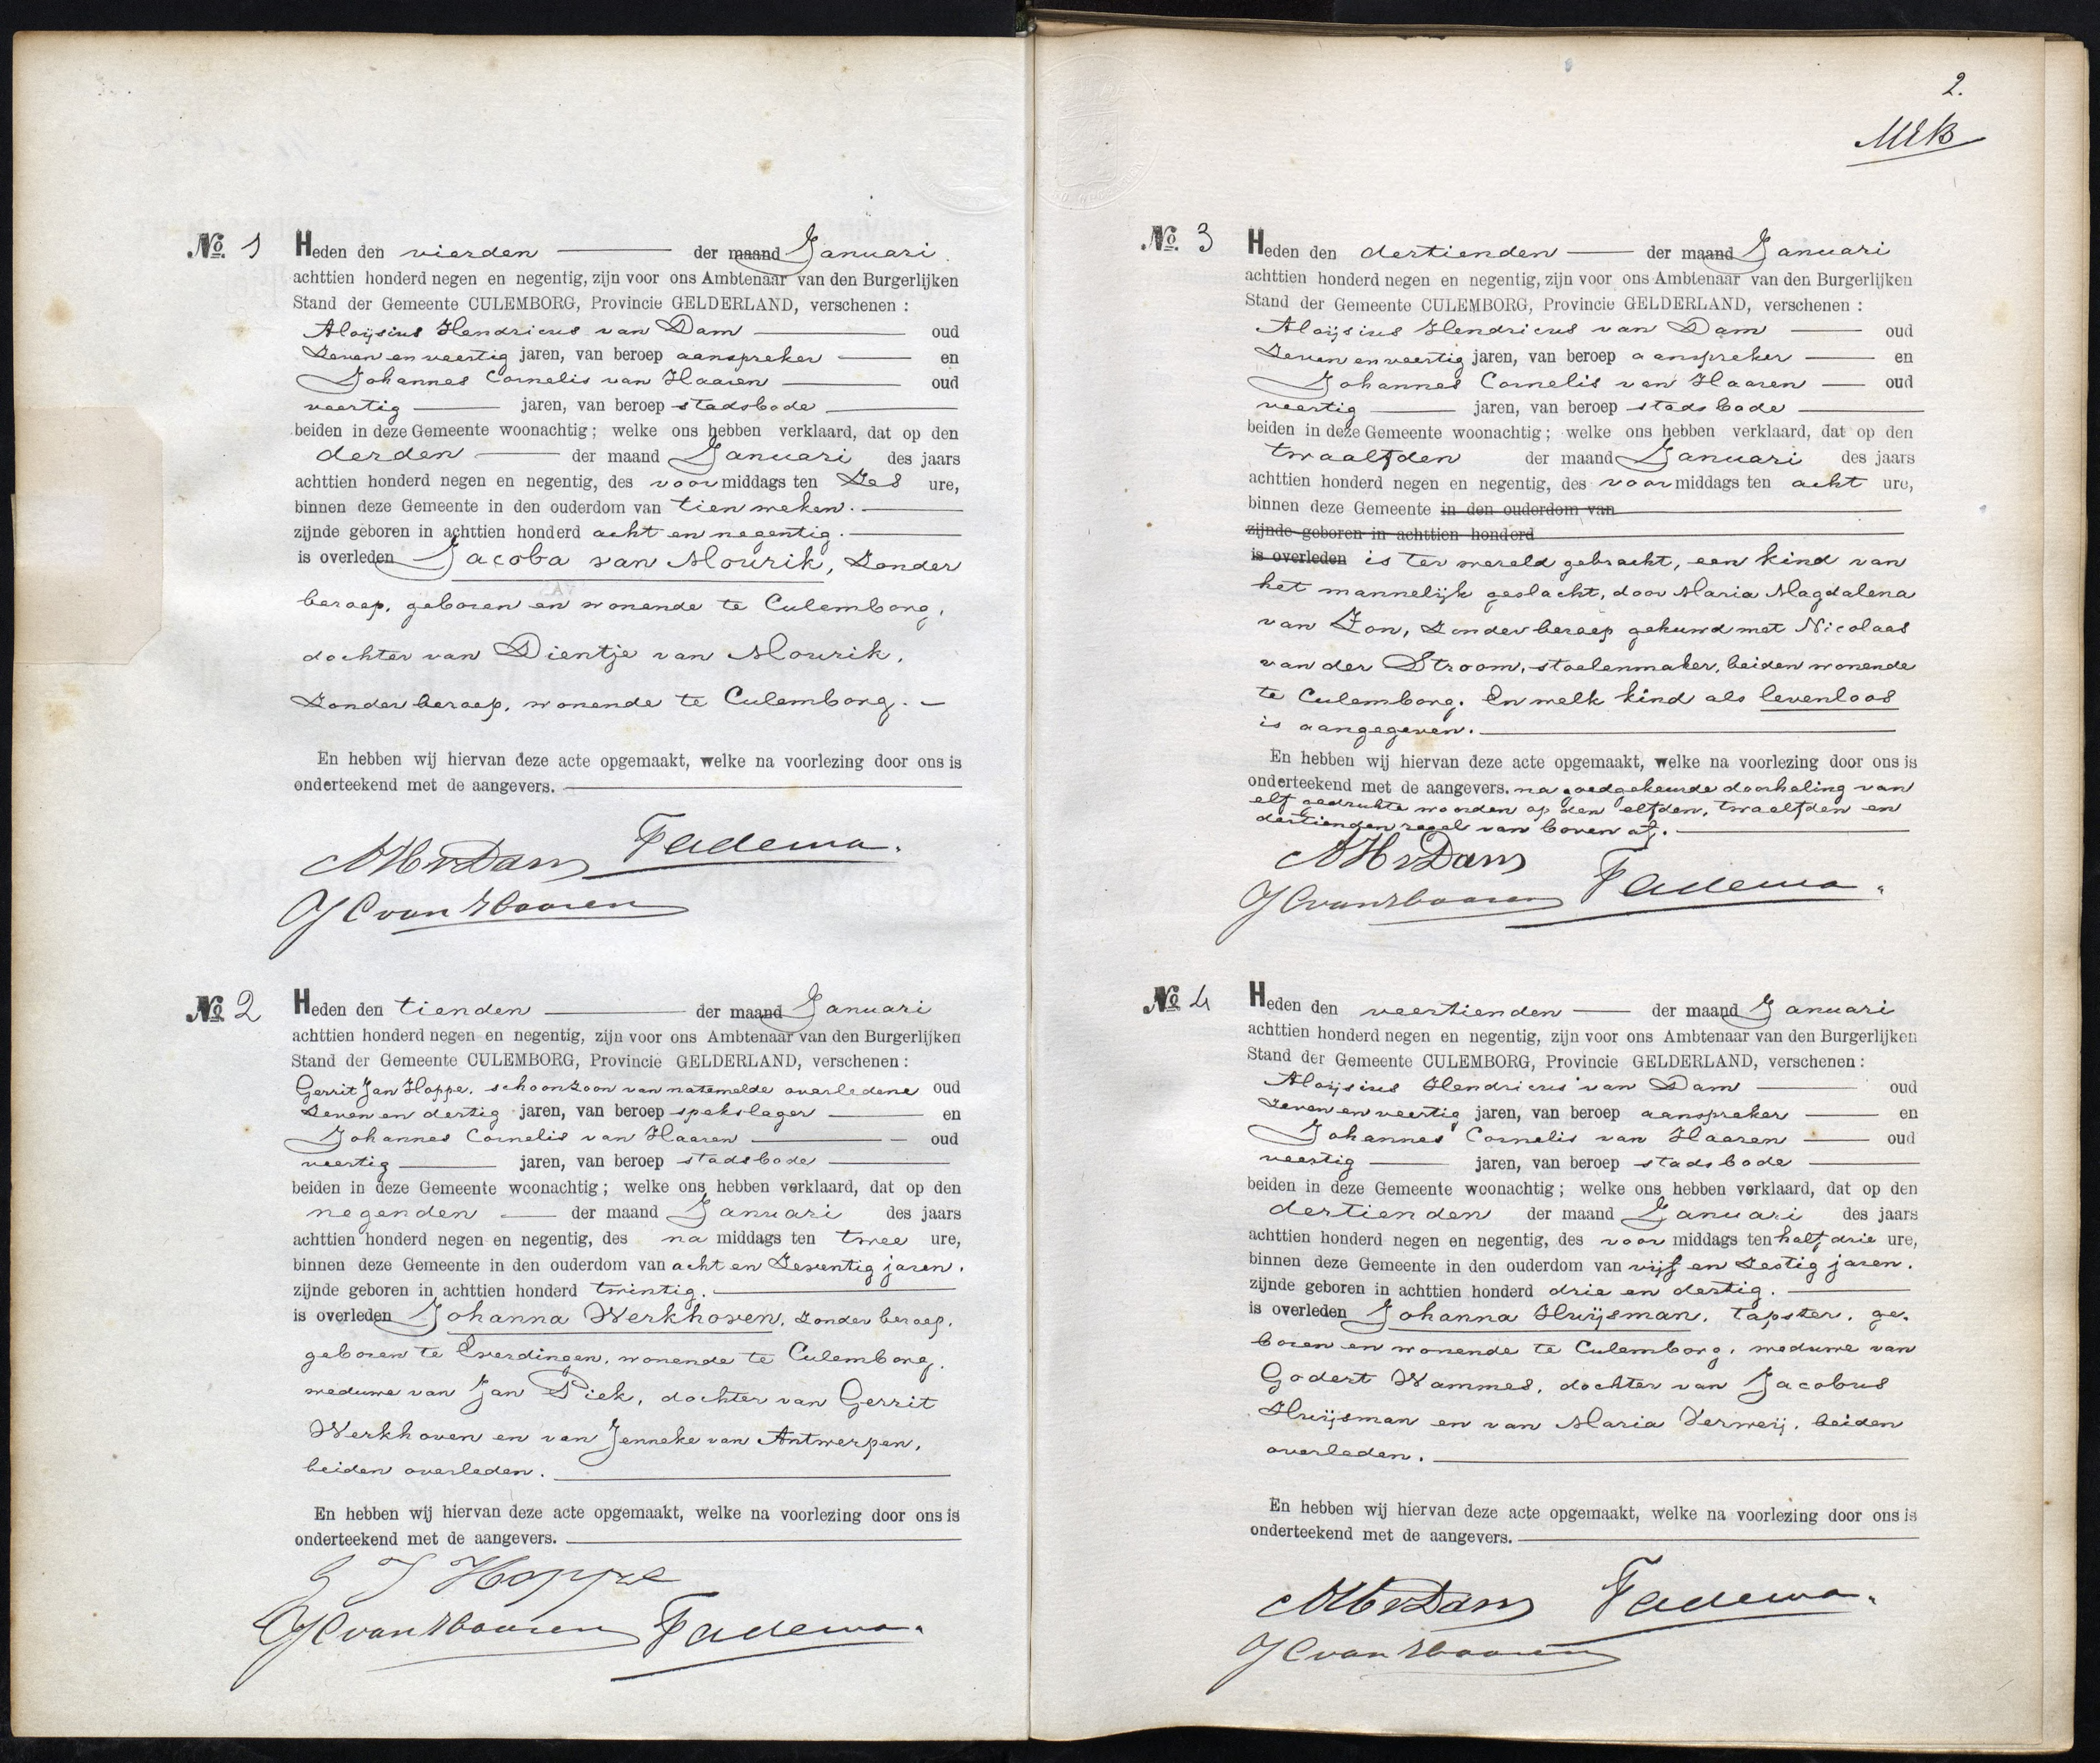 No. 1 Heden den vierden der maand Januari.
achttien honderd negen en negentig, zijn voor ons Ambtenaar van den Burgerlijken
Stand der Gemeente CULEMBORG, Provincie GELDERLAND, verschenen :
Aloijsius Hendricus van Dam oud
Zeven en veertig jaren, van beroep aanspreker en
Johannes Cornelis van Haaren oud
veertig jaren, van beroep stadsbode
beiden in deze Gemeente woonachtig; welke ons hebben verklaard, dat op den
derden der maand Januari des jaars
achttien honderd negen en negentig, des voormiddags ten Zes ure,
binnen deze Gemeente in den ouderdom van tien weken.
zijnde geboren in achttien honderd acht en negentig.
is overleden Jacoba van Mourik, Zonder
beroep, geboren en wonende te Culemborg,
dochter van Dientje van Mourik,
Zonder beroep, wonende te Culemborg.
En hebben wij hiervan deze acte opgemaakt, welke na voorlezing door ons is
onderteekend met de aangevers.
AHvDam Fadema.
JC van Haaren
No 2 Heden den tienden der maand Januari
achttien honderd negen en negentig, zijn voor ons Ambtenaar van den Burgerlijken
Stand der Gemeente CULEMBORG, Provincie GELDERLAND, verschenen :
Gerrit Jan Hoppe, schoonzoon van natemelde overledene oud
Zeven en dertig jaren, van beroep spekslager en
Johannes Cornelis van Haaren oud
veertig jaren, van beroep stadsbode
beiden in deze Gemeente woonachtig; welke ons hebben verklaard, dat op den
negenden der maand Januari des jaars
achttien honderd negen en negentig, des na middags ten twee ure,
binnen deze Gemeente in den ouderdom van acht en Zeventig jaren.
zijnde geboren in achttien honderd twintig.
is overleden Johanna Werkhoven, Zonder beroep,
geboren te Everdingen, wonende te Culemborg,
weduwe van Jan Piek, dochter van Gerrit
Werkhoven en van Jenneke van Antwerpen,
beiden overleden.
En hebben wij hiervan deze acte opgemaakt, welke na voorlezing door ons is
onderteekend met de aangevers.
G J Hoppe
JC van Haaren Fadema.
2.
No. 3 Heden den dertienden der maand Januari
achttien honderd negen en negentig, zijn voor ons Ambtenaar van den Burgerlijken
Stand der Gemeente CULEMBORG, Provincie GELDERLAND, verschenen :
Aloijsius Hendricus van Dam oud
Zeven en veertig jaren, van beroep aanspreker en
Johannes Cornelis van Haaren oud
veertig jaren, van beroep stadsbode
beiden in deze Gemeente woonachtig; welke ons hebben verklaard, dat op den
twaalfden der maand Januari des jaars
achttien honderd negen en negentig, des voormiddags ten acht ure,
binnen deze Gemeente in den ouderdom van
zijnde geboren in achttien honderd
is overleden is ter wereld gebracht, een kind van
het mannelijk geslacht, door Maria Magdalena
van Zon, Zonder beroep gehuwd met Nicolaas
van der Stroom, stoelenmaker, beiden wonende
te Culemborg. En welk kind als levenloos
is aangegeven.
En hebben wij hiervan deze acte opgemaakt, welke na voorlezing door ons is
onderteekend met de aangevers. na goedgekeurde doorhaling van
elf gedrukte woorden op den elfden, twaalfden en
dertienden regel van boven af.
AHvDam
JC van Haaren Fadema.
No 4 Heden den veertienden der maand Januari
achttien honderd negen en negentig, zijn voor ons Ambtenaar van den Burgerlijken
Stand der Gemeente CULEMBORG, Provincie GELDERLAND, verschenen :
Aloijsius Hendricus van Dam oud
Zeven en veertig jaren, van beroep aanspreker en
Johannes Cornelis van Haaren oud
veertig jaren, van beroep stadsbode
beiden in deze Gemeente woonachtig; welke ons hebben verklaard, dat op den
dertienden der maand Januari des jaars
achttien honderd negen en negentig, des voor middags ten half drie ure,
binnen deze Gemeente in den ouderdom van vijf en Zestig jaren.
zijnde geboren in achttien honderd drie en dertig.
is overleden Johanna Huijsman, tapster, ge-
boren en wonende te Culemborg, weduwe van
Godert Wammes, dochter van Jacobus
Huijsman en van Maria Verweij, beiden
overleden.
En hebben wij hiervan deze acte opgemaakt, welke na voorlezing door ons is
onderteekend met de aangevers.
AHvDam Fadema.
JC van Haaren